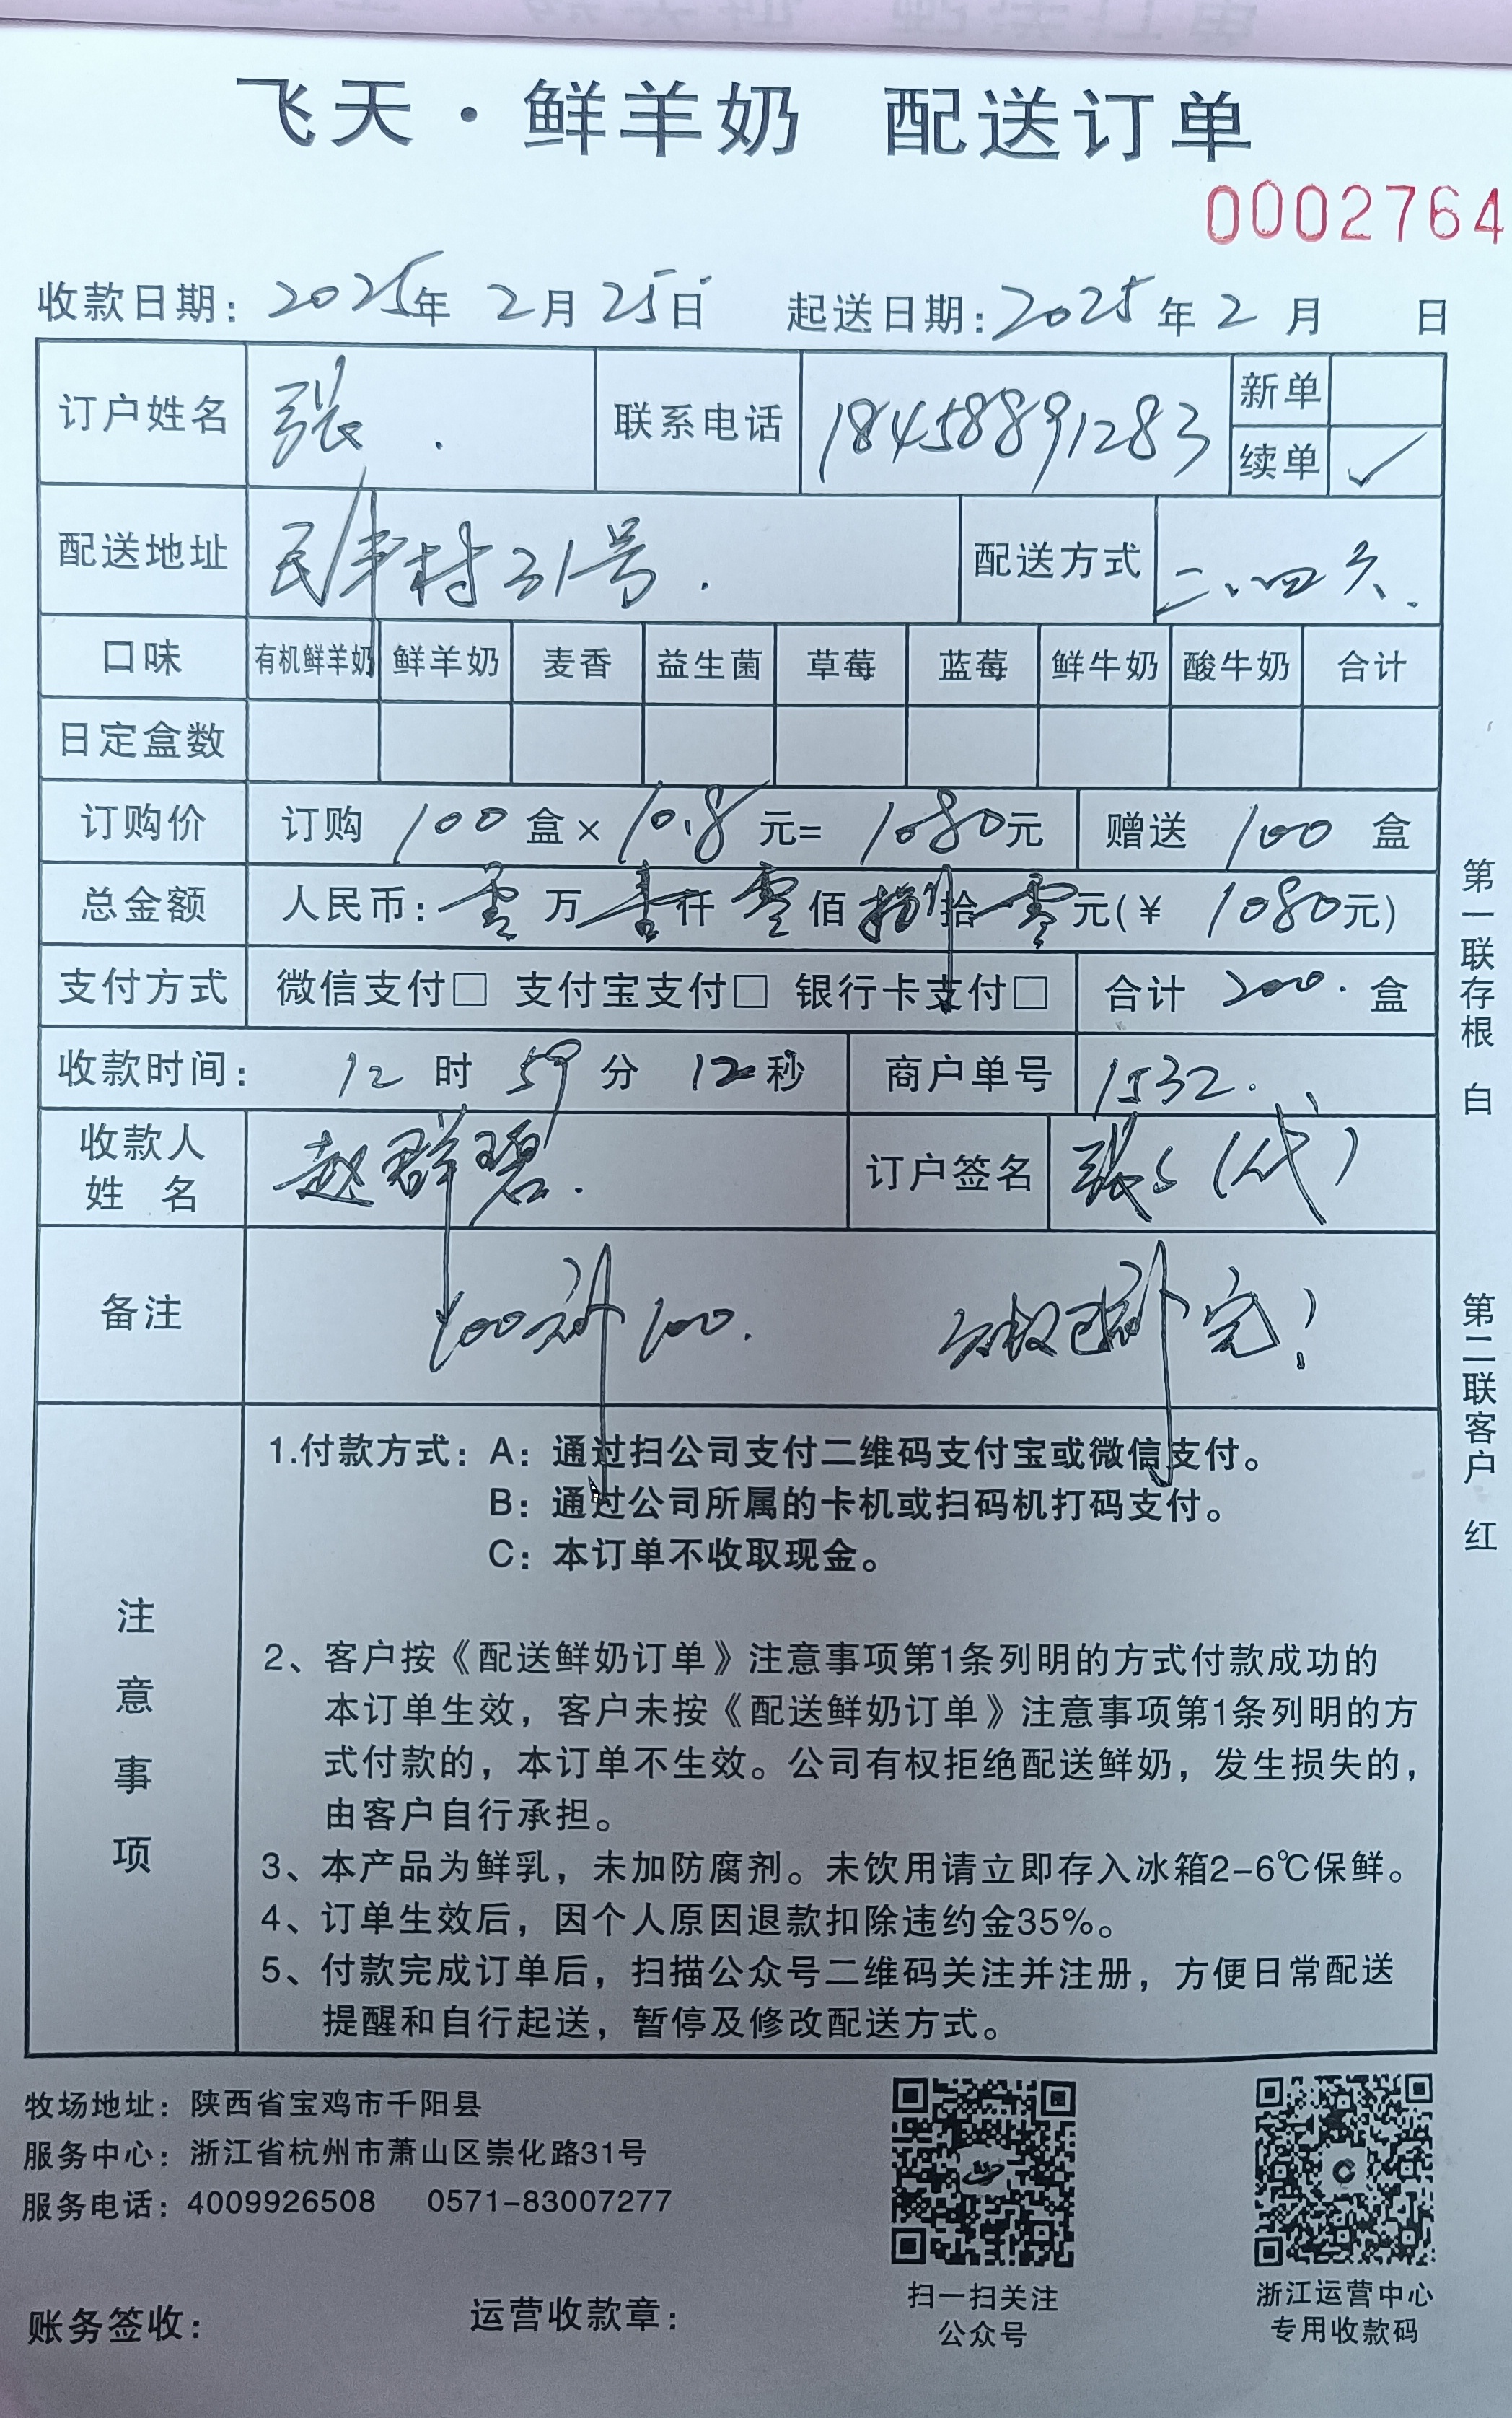 飞天·鲜羊奶 配送订单
0002764
收款日期：2025年 2月25日 起送日期：2025年2月 日
订户姓名 张. 联系电话 18458891283 新单
续单 ✓
配送地址 民丰村31号. 配送方式 二、四六.
口味 有机鲜羊奶 鲜羊奶 麦香 益生菌 草莓 蓝莓 鲜牛奶 酸牛奶 合计
日定盒数
订购价 订购 100 盒× 10.8 元= 1080元 赠送 100 盒
总金额 人民币：零万壹仟零佰捌拾零元(¥ 1080元)
支付方式 微信支付□ 支付宝支付□ 银行卡支付□ 合计 200. 盒
收款时间： 12 时 59 分 12秒 商户单号 1532.
收款人
姓 名 赵群碧. 订户签名 张(代)
备注 100补100. 已补完！
注意事项
1.付款方式：A：通过扫公司支付二维码支付宝或微信支付。
B：通过公司所属的卡机或扫码机打码支付。
C：本订单不收取现金。
2、客户按《配送鲜奶订单》注意事项第1条列明的方式付款成功的
本订单生效，客户未按《配送鲜奶订单》注意事项第1条列明的方
式付款的，本订单不生效。公司有权拒绝配送鲜奶，发生损失的，
由客户自行承担。
3、本产品为鲜乳，未加防腐剂。未饮用请立即存入冰箱2-6℃保鲜。
4、订单生效后，因个人原因退款扣除违约金35%。
5、付款完成订单后，扫描公众号二维码关注并注册，方便日常配送
提醒和自行起送，暂停及修改配送方式。
第一联存根 白 第二联客户 红
牧场地址：陕西省宝鸡市千阳县
服务中心：浙江省杭州市萧山区崇化路31号
服务电话：4009926508 0571-83007277
扫一扫关注
公众号
浙江运营中心
专用收款码
账务签收： 运营收款章：